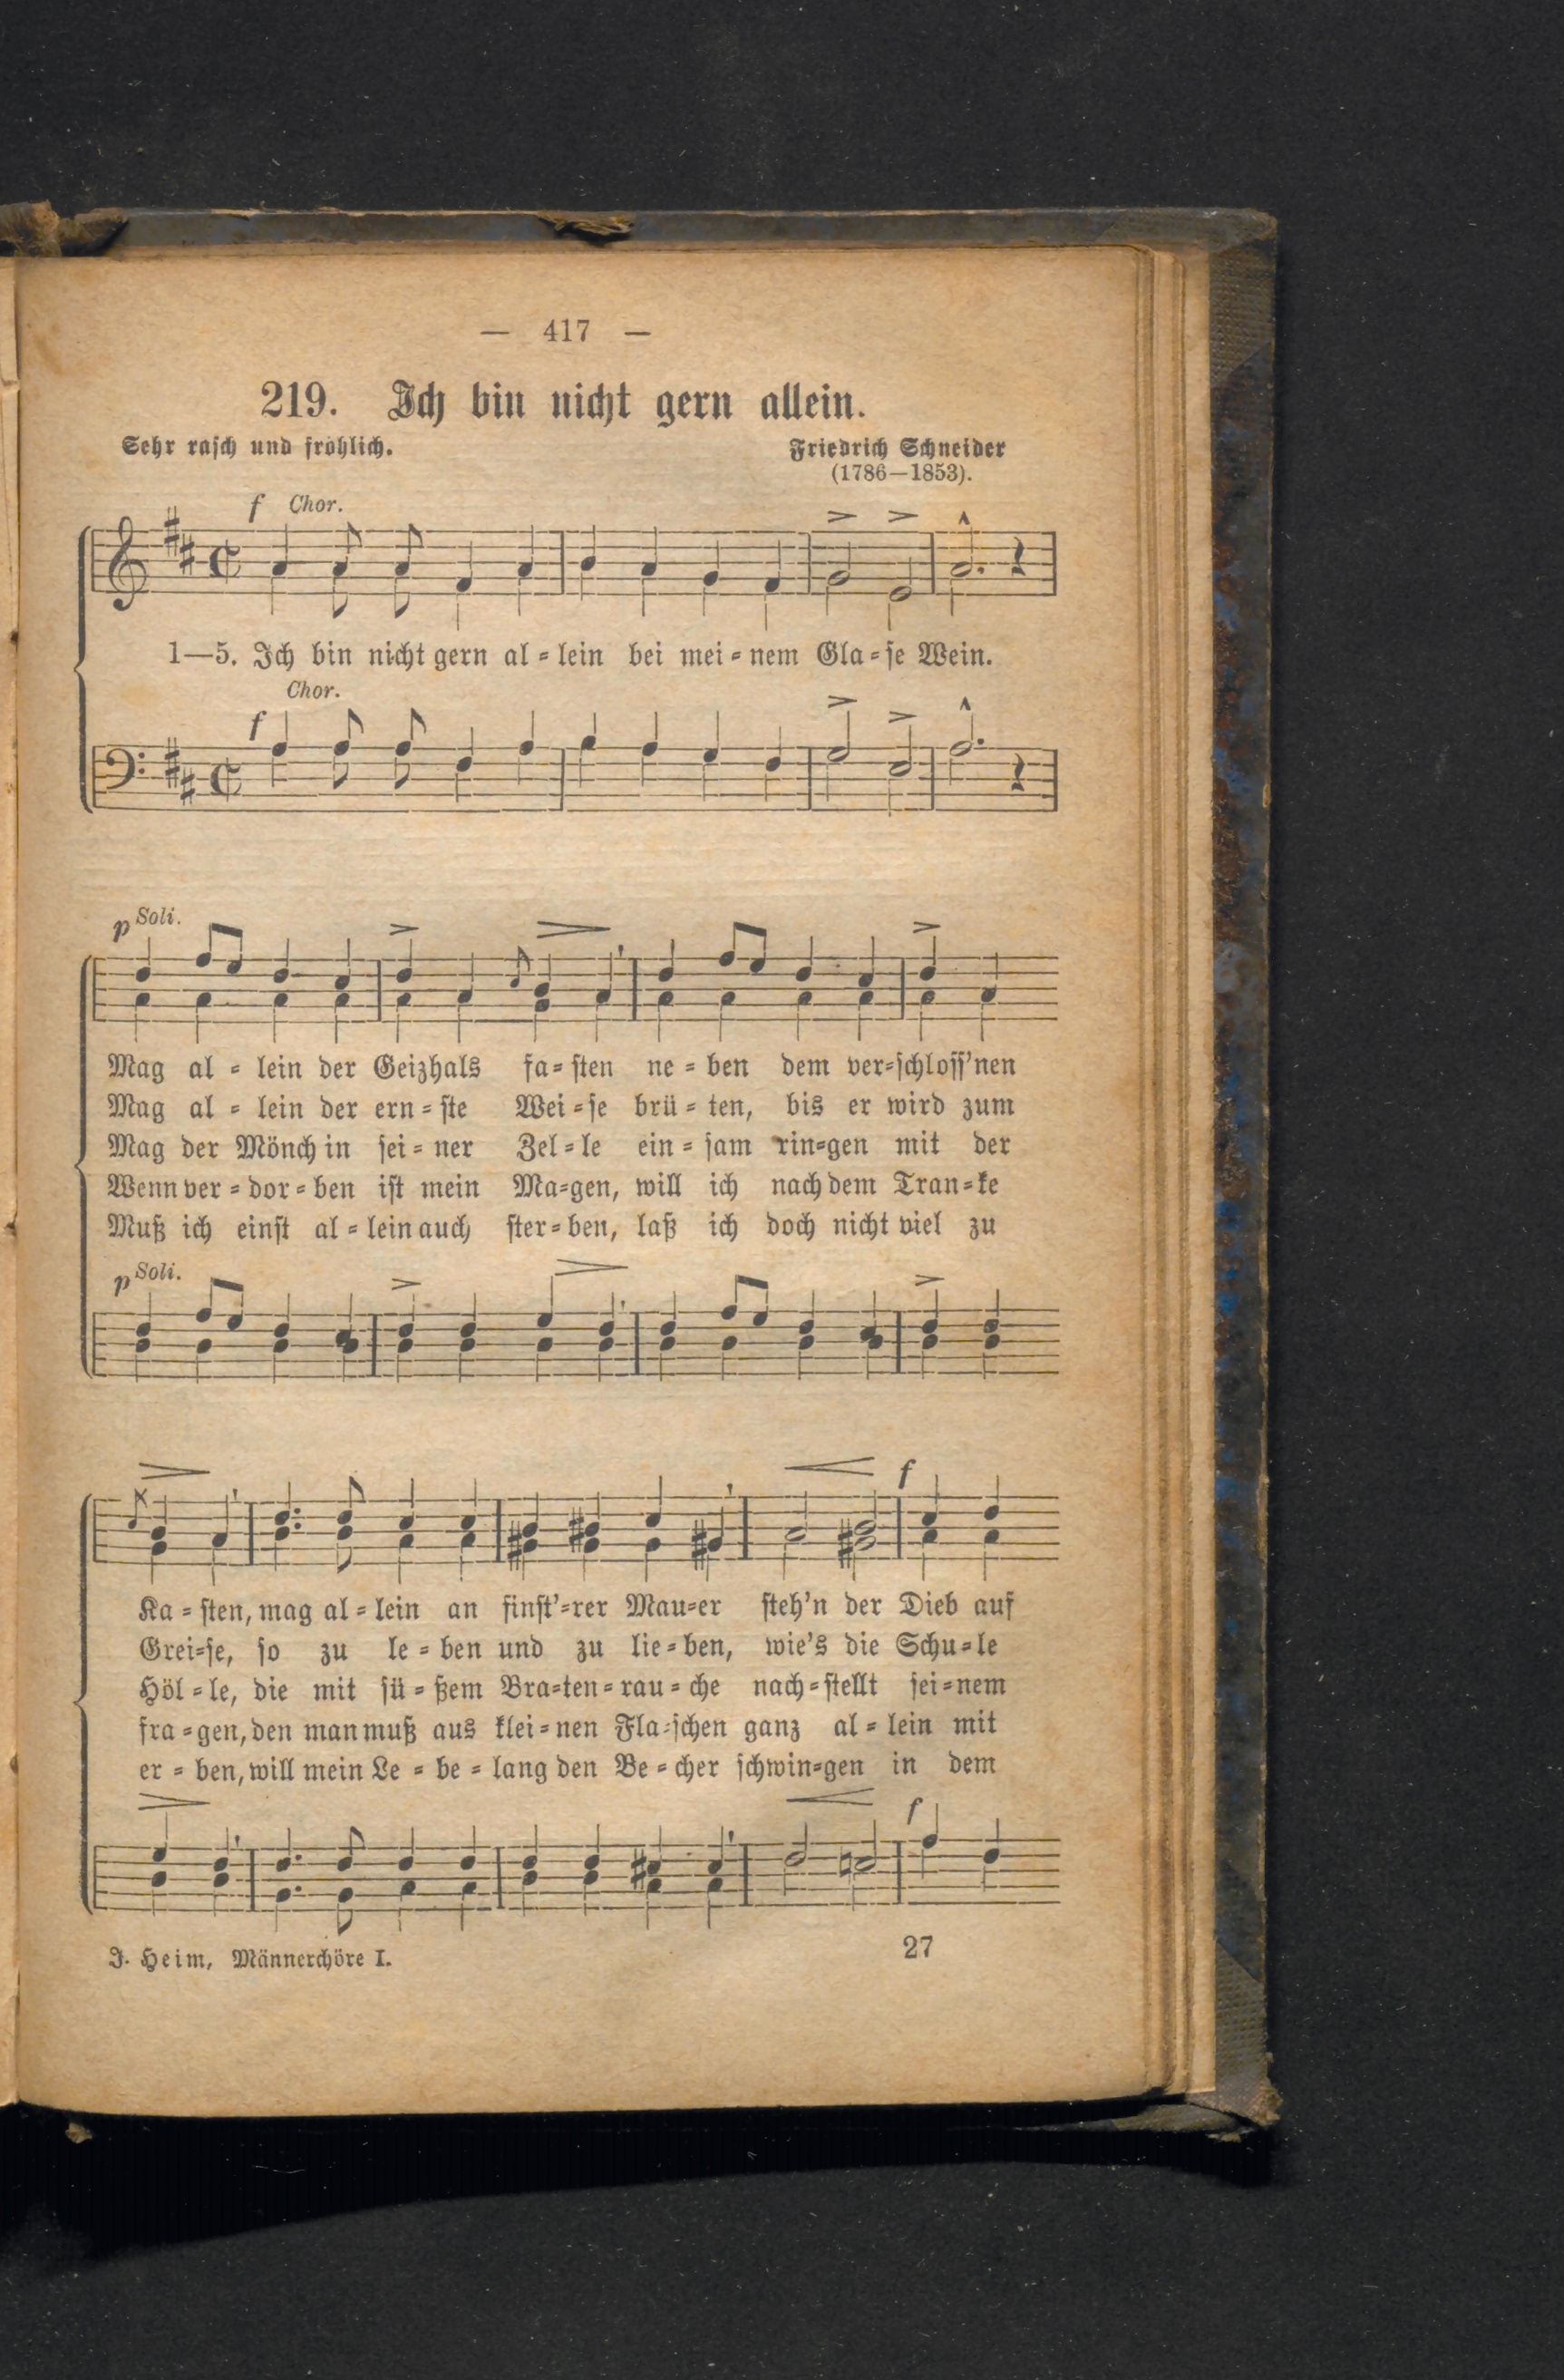 — 417 —
219. Ich bin nicht gern allein.
Sehr rasch und fröhlich.
Friedrich Schneider
(1786—1853).
f Chor.
1—5. Ich bin nicht gern al = lein bei mei = nem Gla = se Wein.
Chor.
f
p Soli.
Mag al = lein der Geizhals fa = sten ne = ben dem ver=schloss'nen
Mag al = lein der ern = ste Wei = se brü = ten, bis er wird zum
Mag der Mönch in sei = ner Zel = le ein = sam rin=gen mit der
Wenn ver = dor = ben ist mein Ma=gen, will ich nach dem Tran=ke
Muß ich einst al = lein auch ster = ben, laß ich doch nicht viel zu
p Soli.
f
Ka = sten, mag al = lein an finst'=rer Mau=er steh'n der Dieb auf
Grei=se, so zu le = ben und zu lie = ben, wie's die Schu=le
Höl = le, die mit sü = ßem Bra=ten = rau = che nach = stellt sei=nem
fra = gen, den man muß aus klei = nen Fla=schen ganz al = lein mit
er = ben, will mein Le = be = lang den Be = cher schwin=gen in dem
f
J. Heim, Männerchöre I.
27